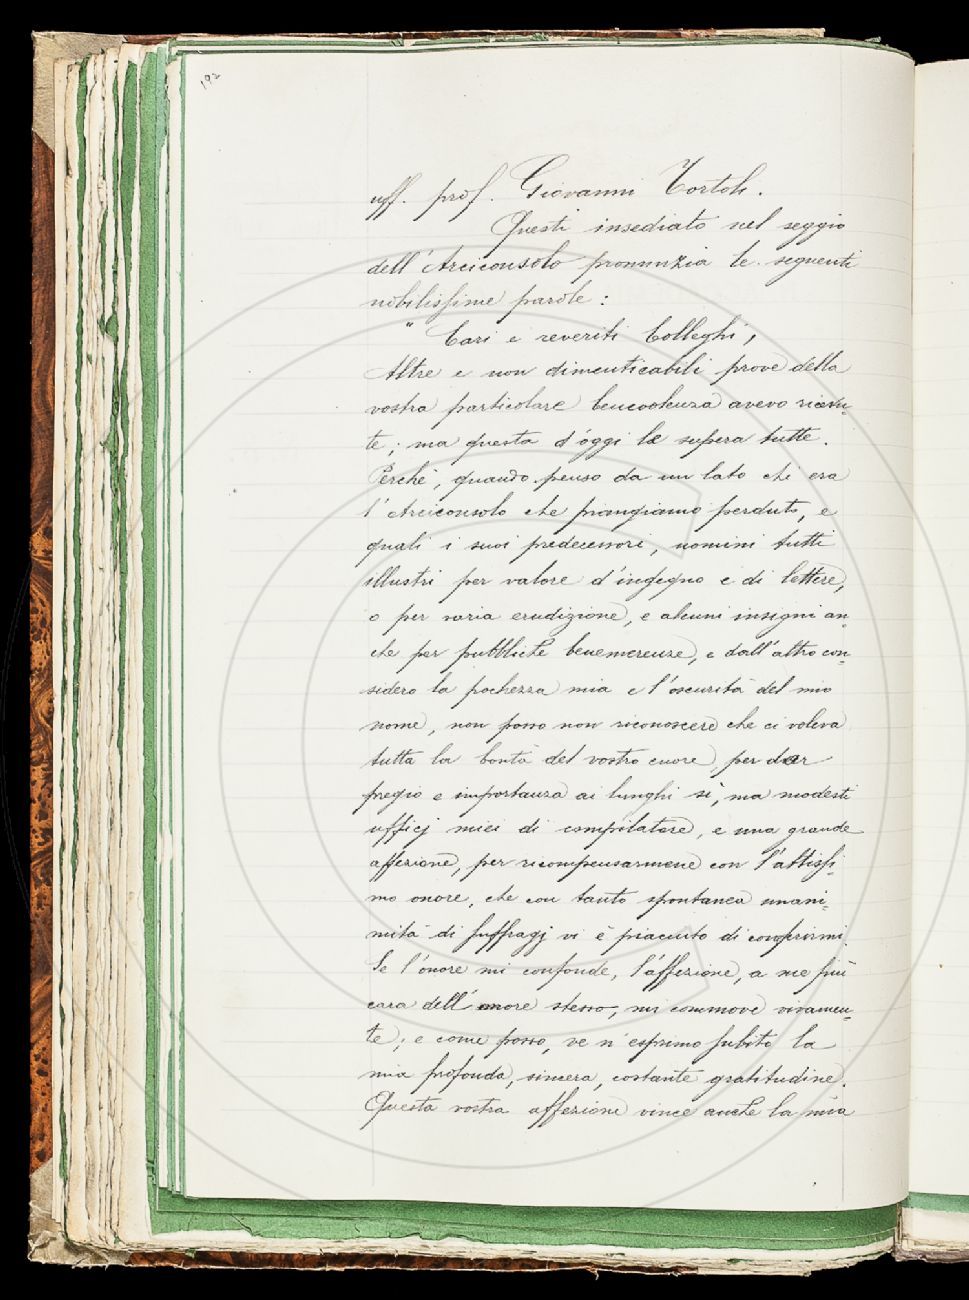 192
uff. prof. Giovanni Tortoli.
Questi insediato nel seggio
dell'Arciconsolo pronunzia le seguenti
nobilissime parole:
"Cari e reveriti Colleghi,
Altre e non dimenticabili prove della
vostra particolare benevolenza avevo ricevu=
te; ma questa d'oggi le supera tutte.
Perchè, quando penso da un lato chi era
l'Arciconsolo che piangiamo perduto, e
quali i suoi predecessori, uomini tutti
illustri per valore d'ingegno e di lettere,
o per varia erudizione, e alcuni insigni an=
che per pubbliche benemerenze, e dall'altro con=
sidero la pochezza mia e l'oscurità del mio
nome, non posso non riconoscere che ci voleva
tutta la bontà del vostro cuore, per dar
pregio e importanza ai lunghi sì, ma modesti
ufficj miei di compilatore, e una grande
affezione, per ricompensarmene con l'altissi=
mo onore, che con tanto spontanea unani=
mità di suffragj vi è piaciuto di conferirmi.
Se l'onore mi confonde, l'affezione, a me più
cara dell'onore stesso, mi commove vivamen=
te; e come posso, ve n'esprimo subito la
mia profonda, sincera, costante gratitudine.
Questa vostra affezione vince anche la mia